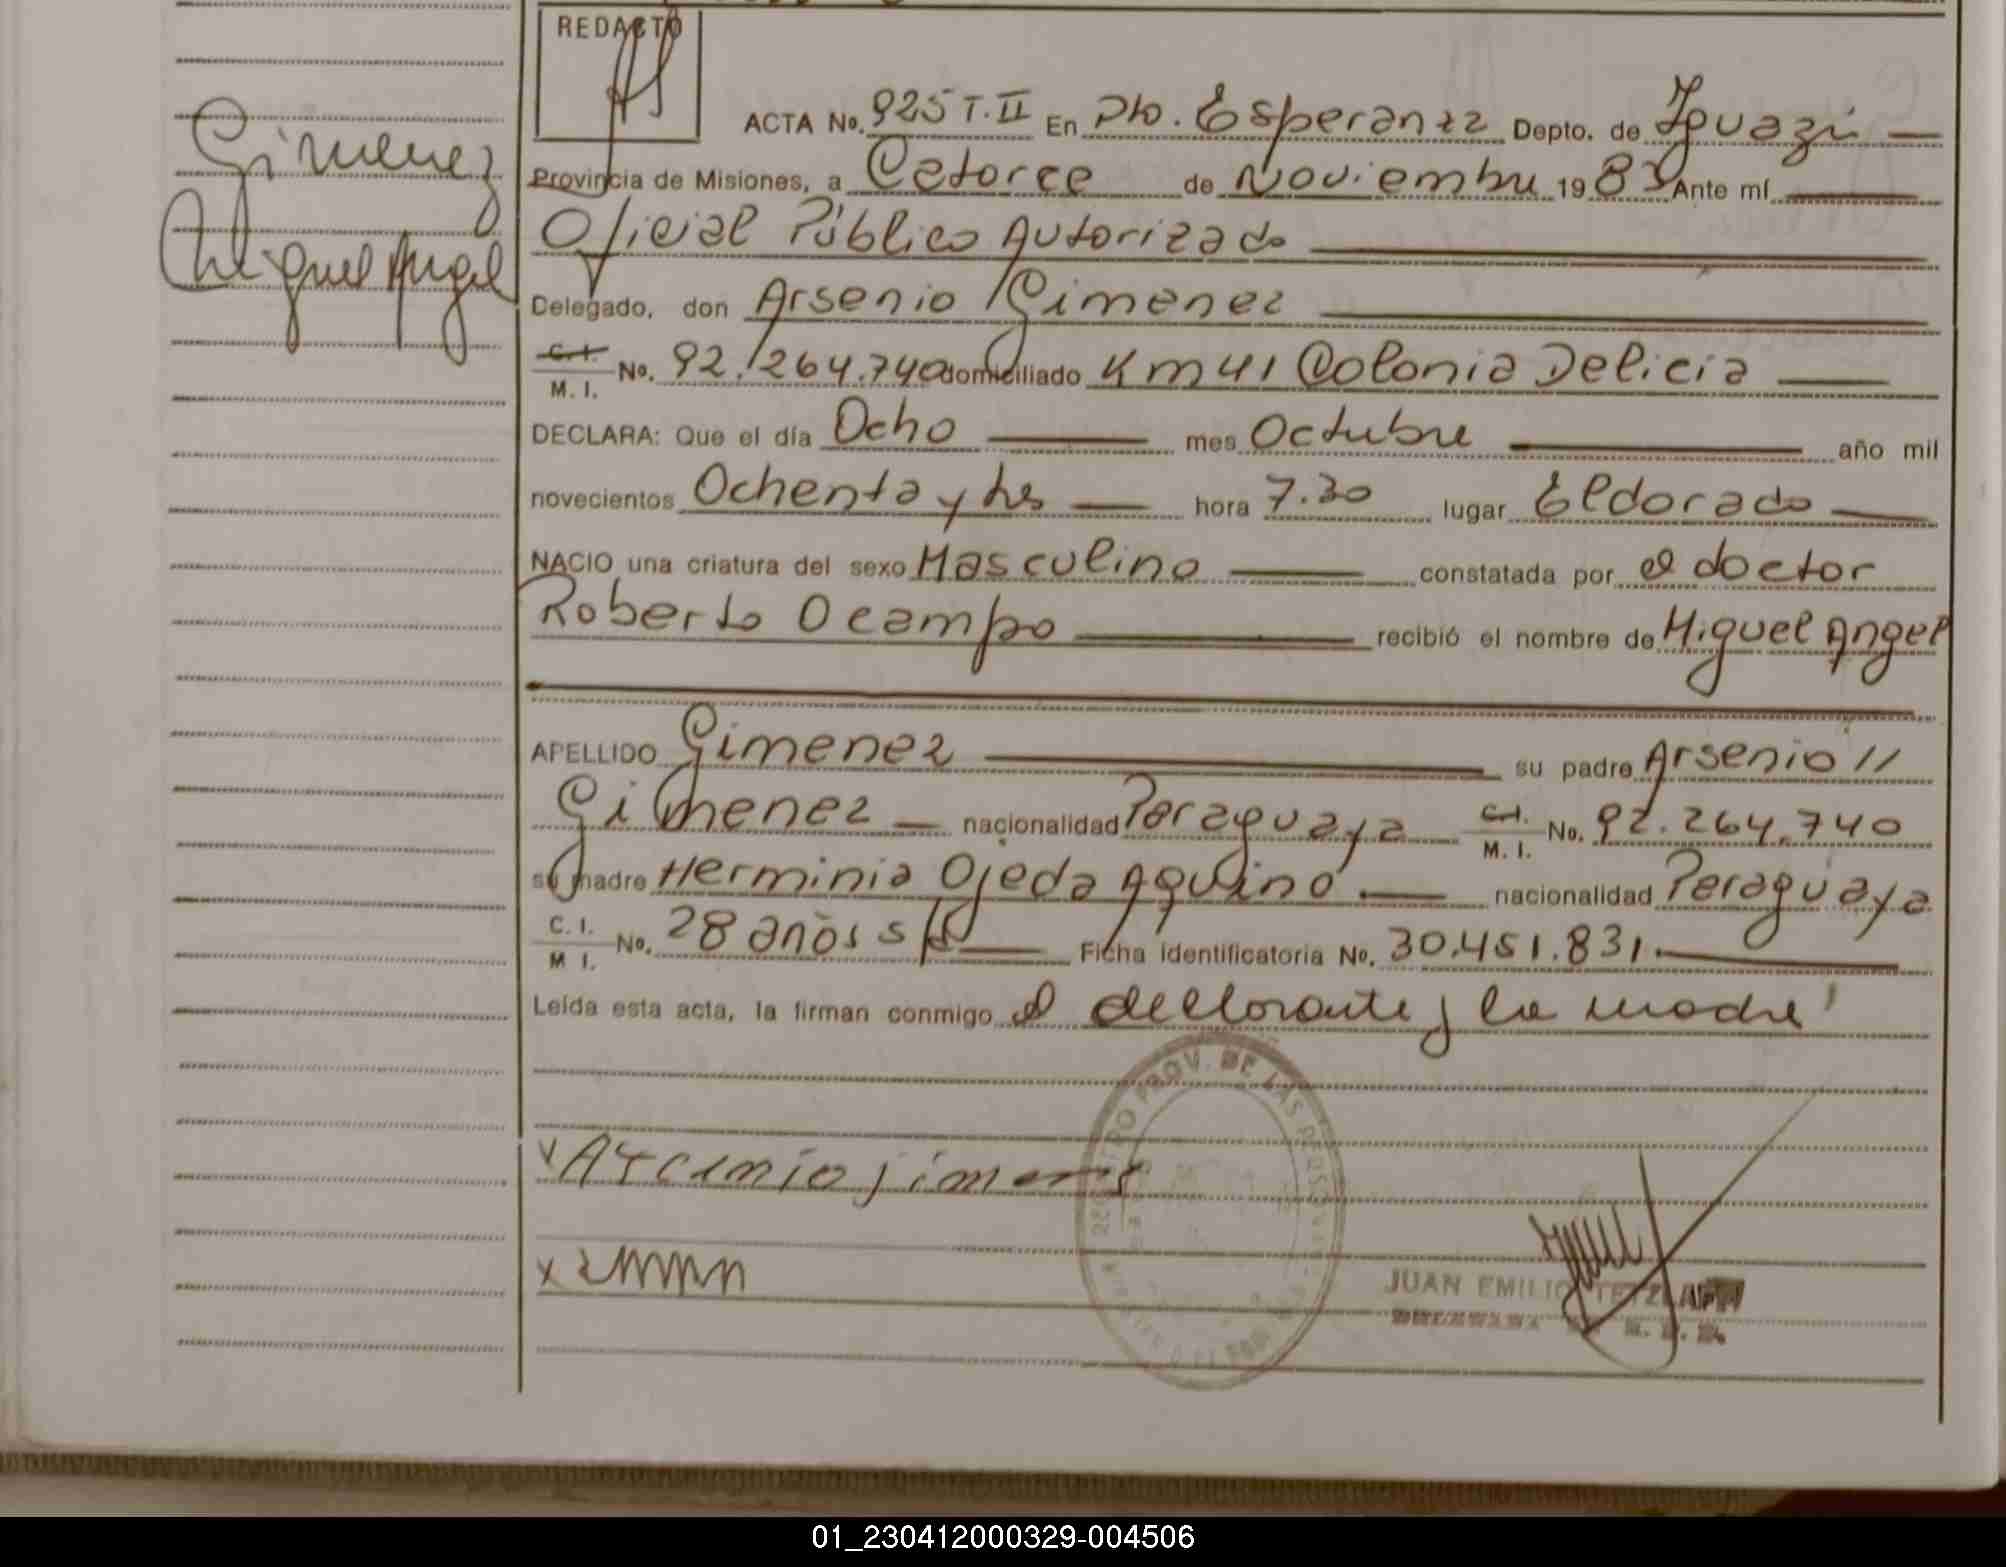 REDACTÓ
Gimenez
Miguel Angel
ACTA No. 925 T.II En Pto. Esperanza Depto. de Iguazú
Provincia de Misiones, a Catorce de Noviembre 1983 Ante mí
Oficial Público Autorizado
Delegado, don Arsenio Gimenez
C.I. M. I. No. 92.264.740 domiciliado Km 41 Colonia Delicia
DECLARA: Que el día Ocho mes Octubre año mil
novecientos Ochenta y tres hora 7.30 lugar Eldorado
NACIO una criatura del sexo Masculino constatada por el doctor
Roberto Ocampo recibió el nombre de Miguel Angel
APELLIDO Gimenez su padre Arsenio //
Gimenez nacionalidad Paraguaya C.I. M. I. No. 92.264.740
su madre Herminia Ojeda Aquino nacionalidad Paraguaya
C. I. M I. No. 28 años Ficha identificatoria No. 30.451.831.
Leída esta acta, la firman conmigo el declarante y la madre
Arcenio jimenes
REGISTRO PROV. DE LAS PERSONAS
JUAN EMILIO TETZLAFF
01_230412000329-004506